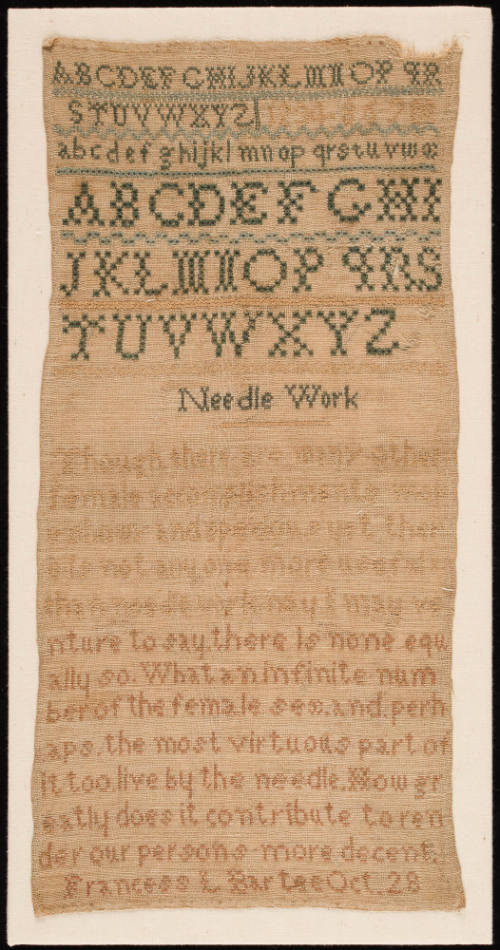 ABCDEFGHIJKLMNOPQR
STUVWXYZ
abcdefghijklmnopqrstuvw
ABCDEFGHI
JKLMNOPQRS
TUVWXYZ
Needle Work
Though there are many other
female accomplishments more
yet ther
e is not any one more useful
than needle work nay I may ve
nture to say, there Is none equ
ally so. What an infinite num
ber of the female sex, and, perh
aps, the most virtuous part of
it too, live by the needle. How gr
eatly does it contribute to ren
der our persons more decent.
Frances L Oct. 28